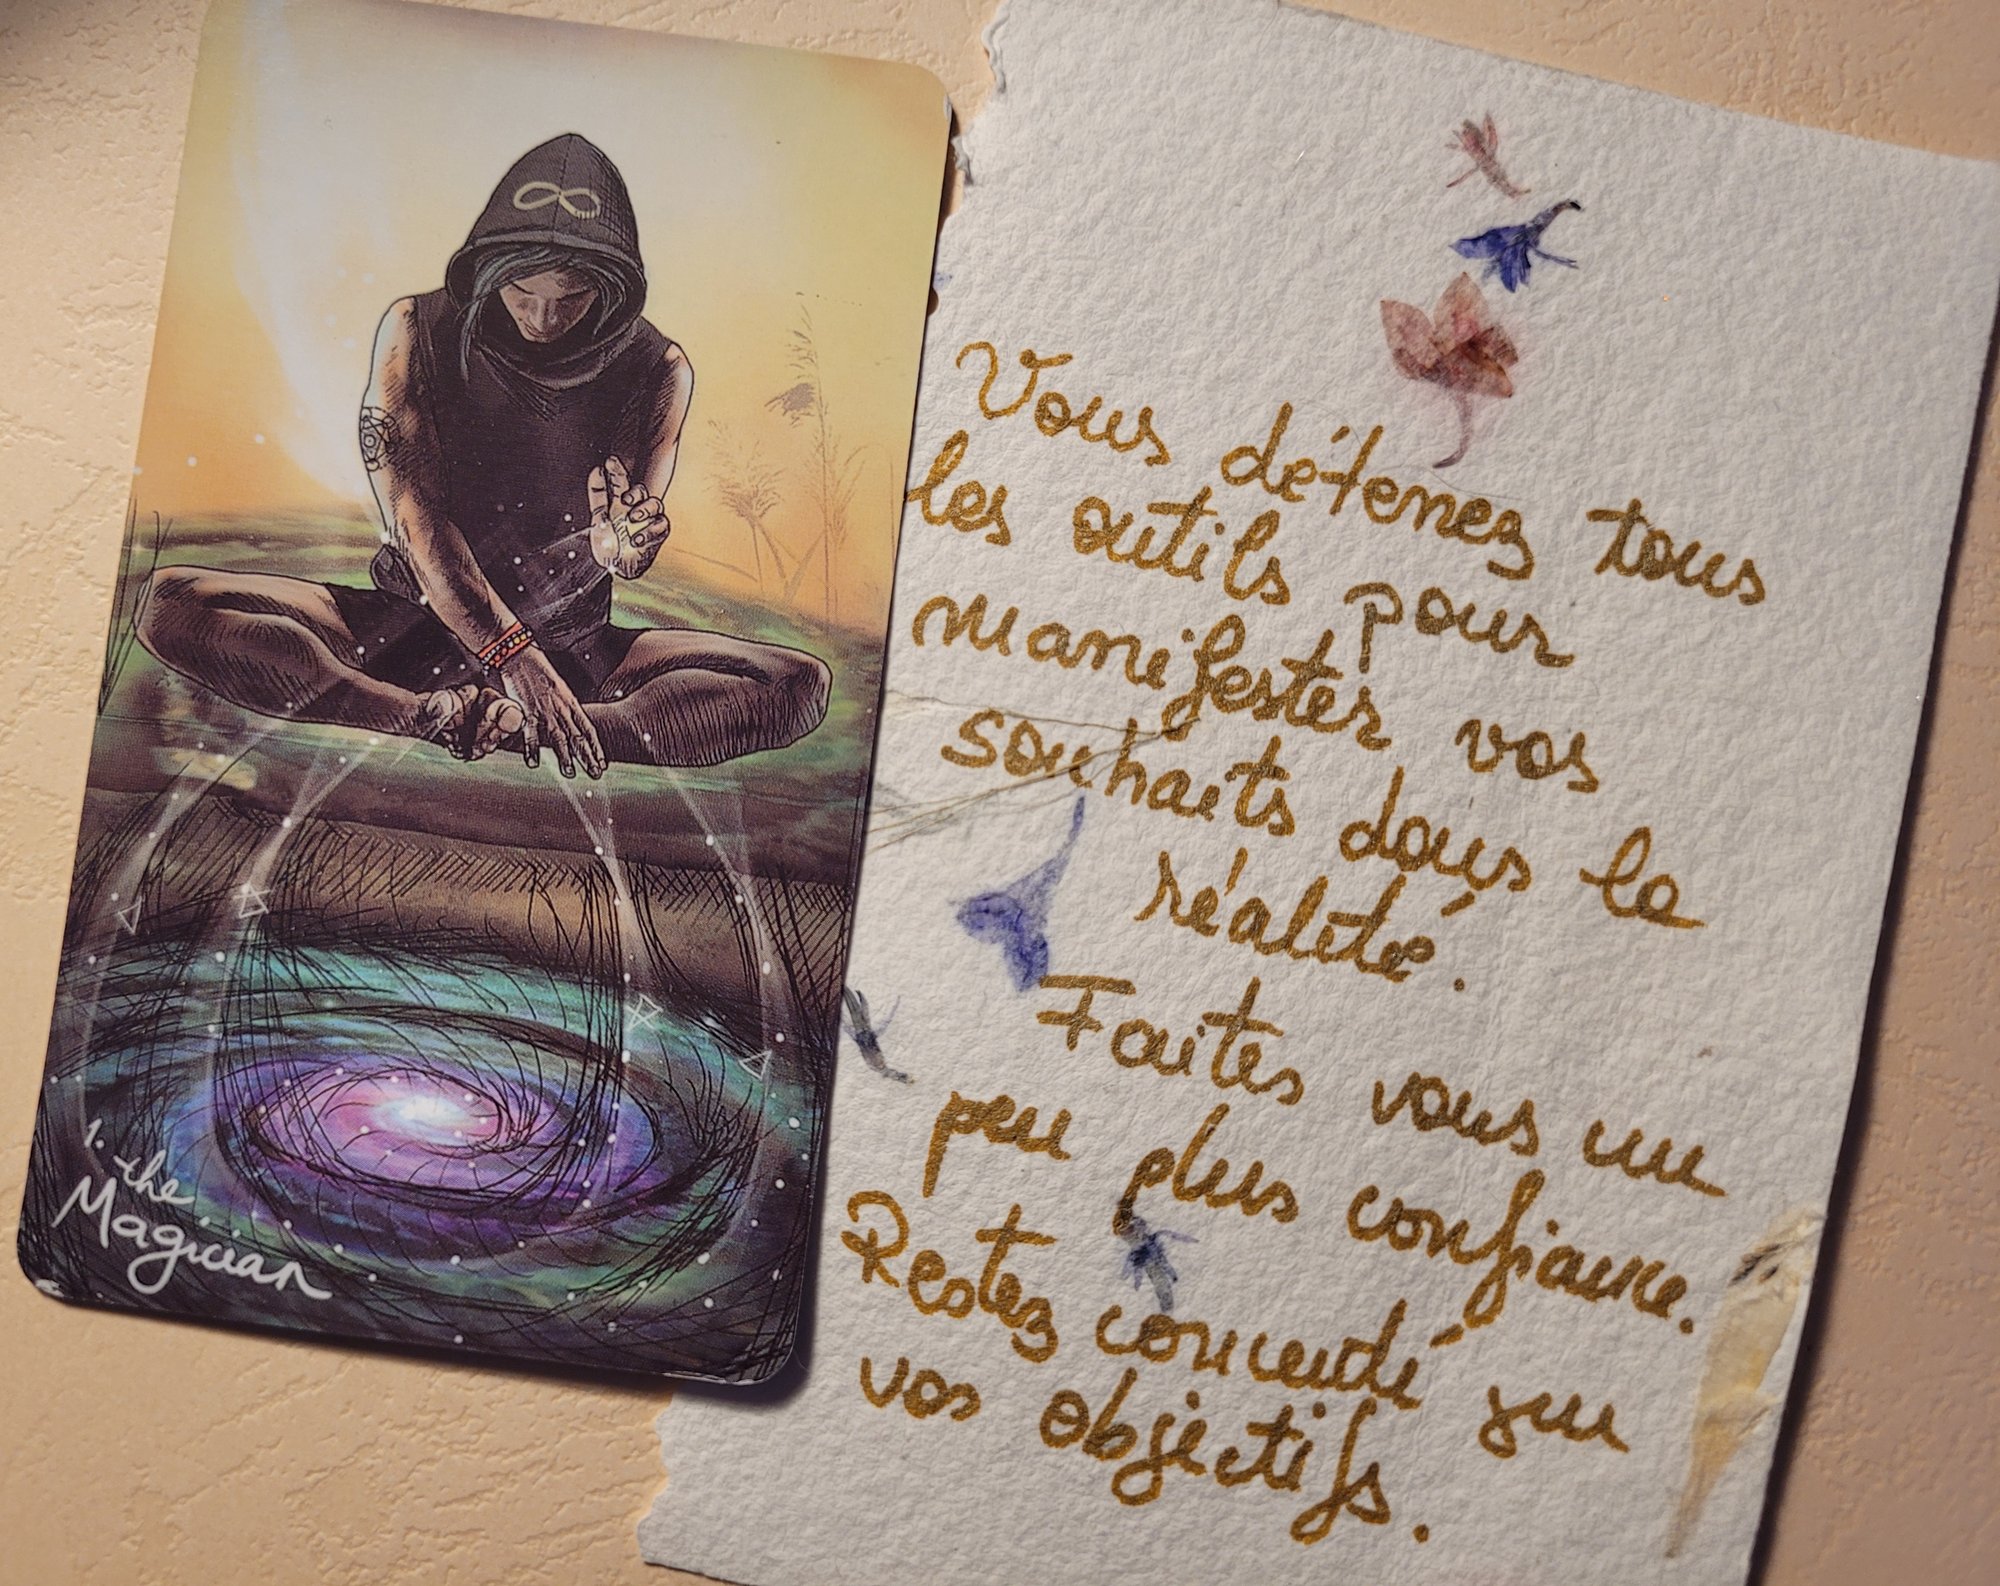 1.
the
Magician
Vous détenez tous
les outils pour
manifester vos
souhaits dans la
réalité.
Faites vous un
peu plus confiance.
Restez concentré sur
vos objectifs.